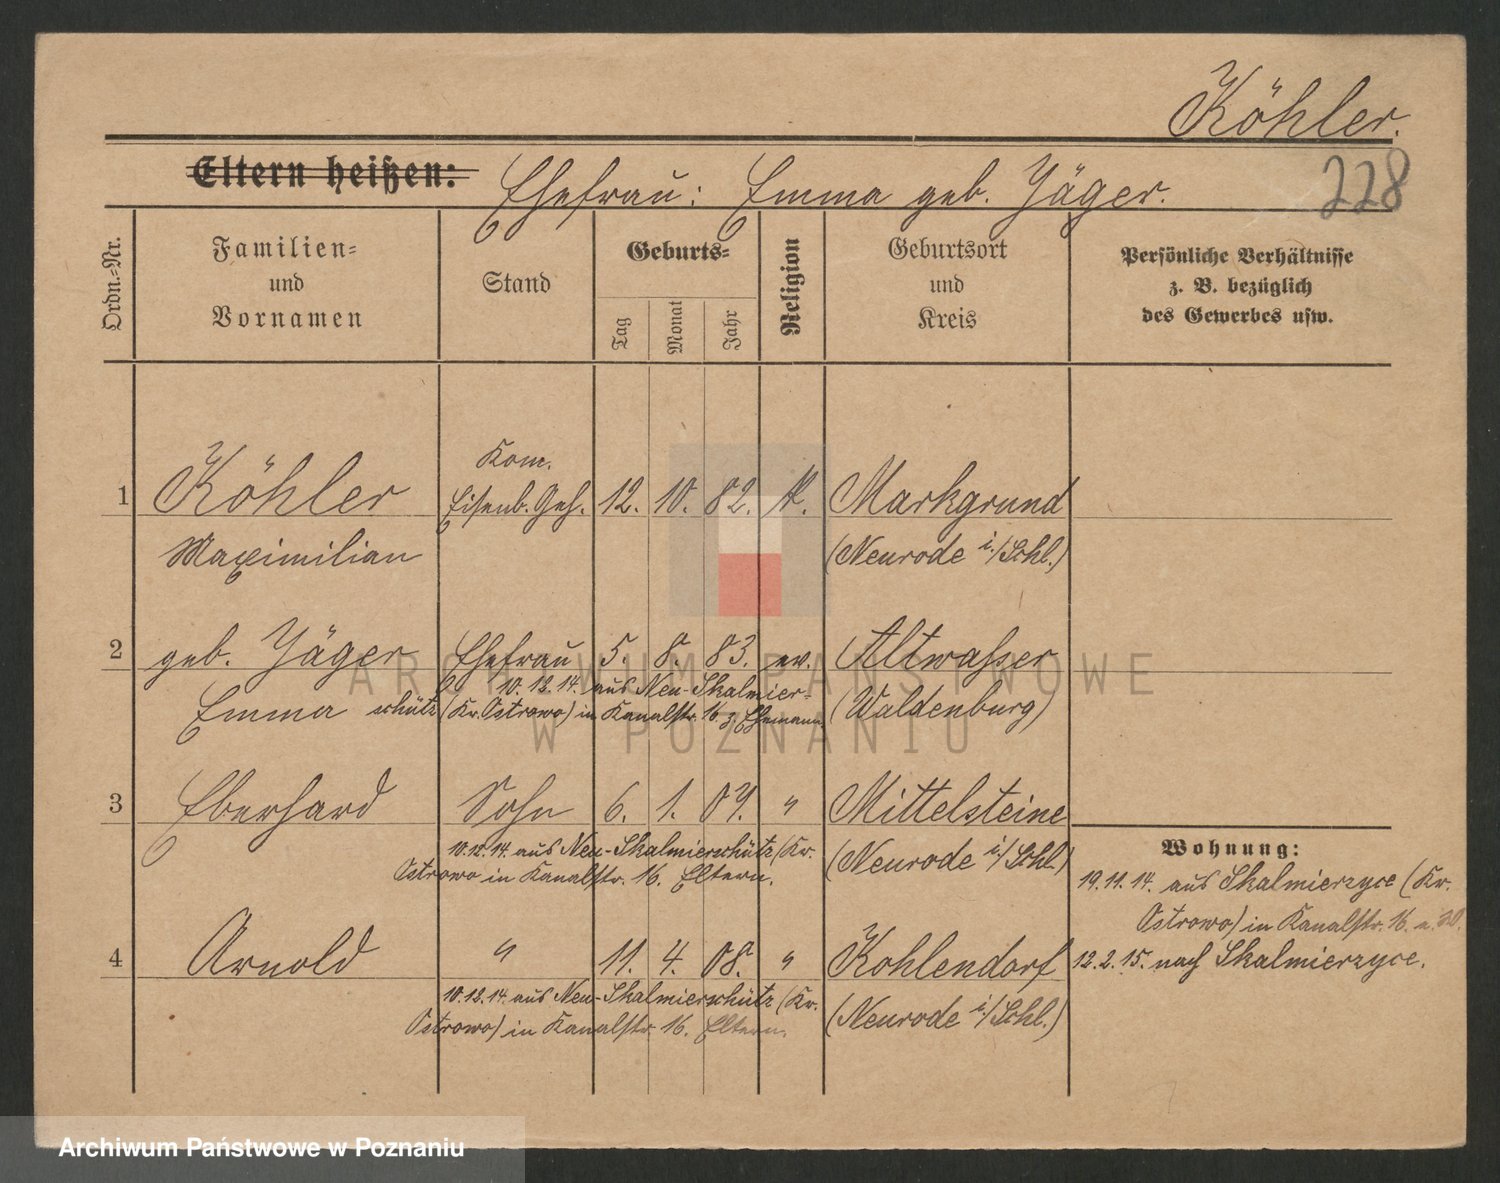 Köhler.
Eltern heißen: Ehefrau: Emma geb. Jäger.
228
Ordn.=Nr.
Familien=
und
Vornamen
Stand
Geburts=
Tag
Monat
Jahr
Religion
Geburtsort
und
Kreis
Persönliche Verhältnisse
z. B. bezüglich
des Gewerbes usw.
Kom.
1 Köhler Eisenb. Geh. 12. 10. 82. K. Markgrund
Maximilian (Neurode i./Schl.)
2 geb. Jäger Ehefrau 5. 8. 83. ev. Altwasser
10.12.14. aus Neu-Skalmier-
Emma schütz (Kr. Ostrowo) in Kanalstr. 16 z. Ehemann. (Waldenburg)
3 Eberhard Sohn 6. 1. 07. " Mittelsteine
10.12.14. aus Neu-Skalmierschütz (Kr. (Neurode i/Schl.)
Ostrowo in Kanalstr. 16. Eltern.
Wohnung:
19.11.14. aus Skalmierzyce (Kr.
Ostrowo) in Kanalstr. 16.
4 Arnold " 11. 4. 08. " Kohlendorf
12.2.15. nach Skalmierzyce.
10.12.14. aus Neu-Skalmierschütz (Kr. (Neurode i/Schl.)
Ostrowo) in Kanalstr. 16. Eltern.
ARCHIWUM PAŃSTWOWE
W POZNANIU
Archiwum Państwowe w Poznaniu